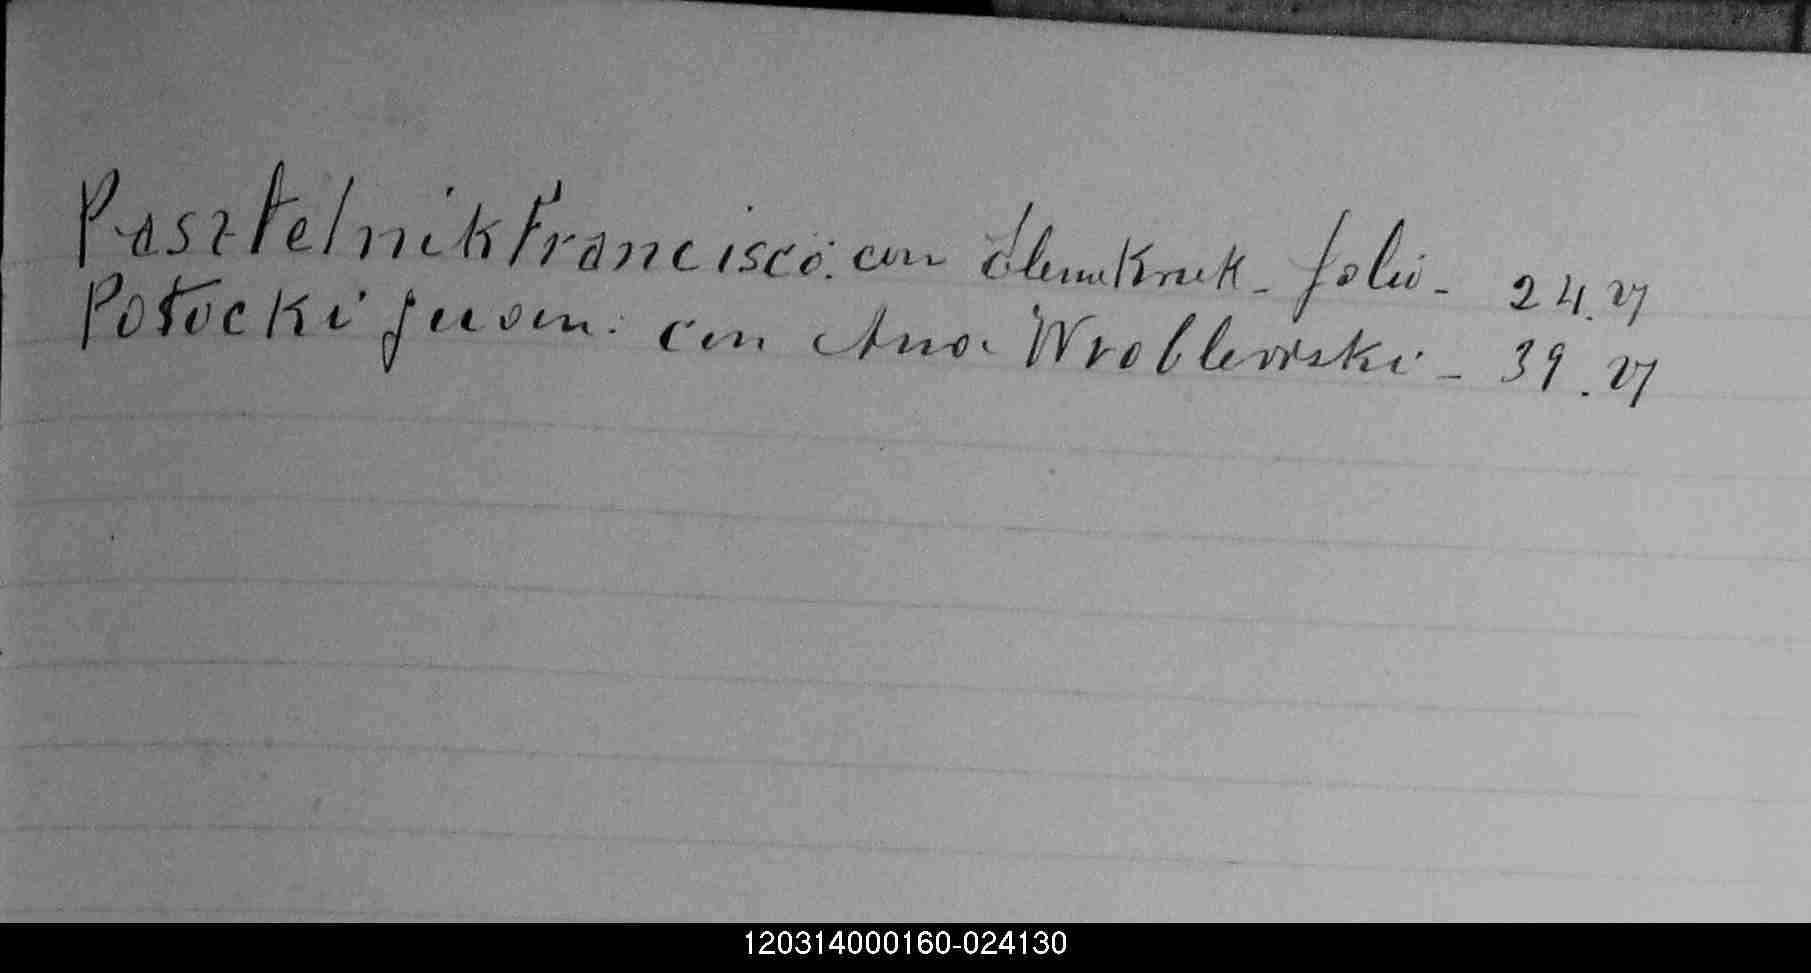 Pasztelnik Francisco. con Elena Kruk - folio - 24. v
Potocki Juan. con Ana Wroblewski - 39. v
120314000160-024130